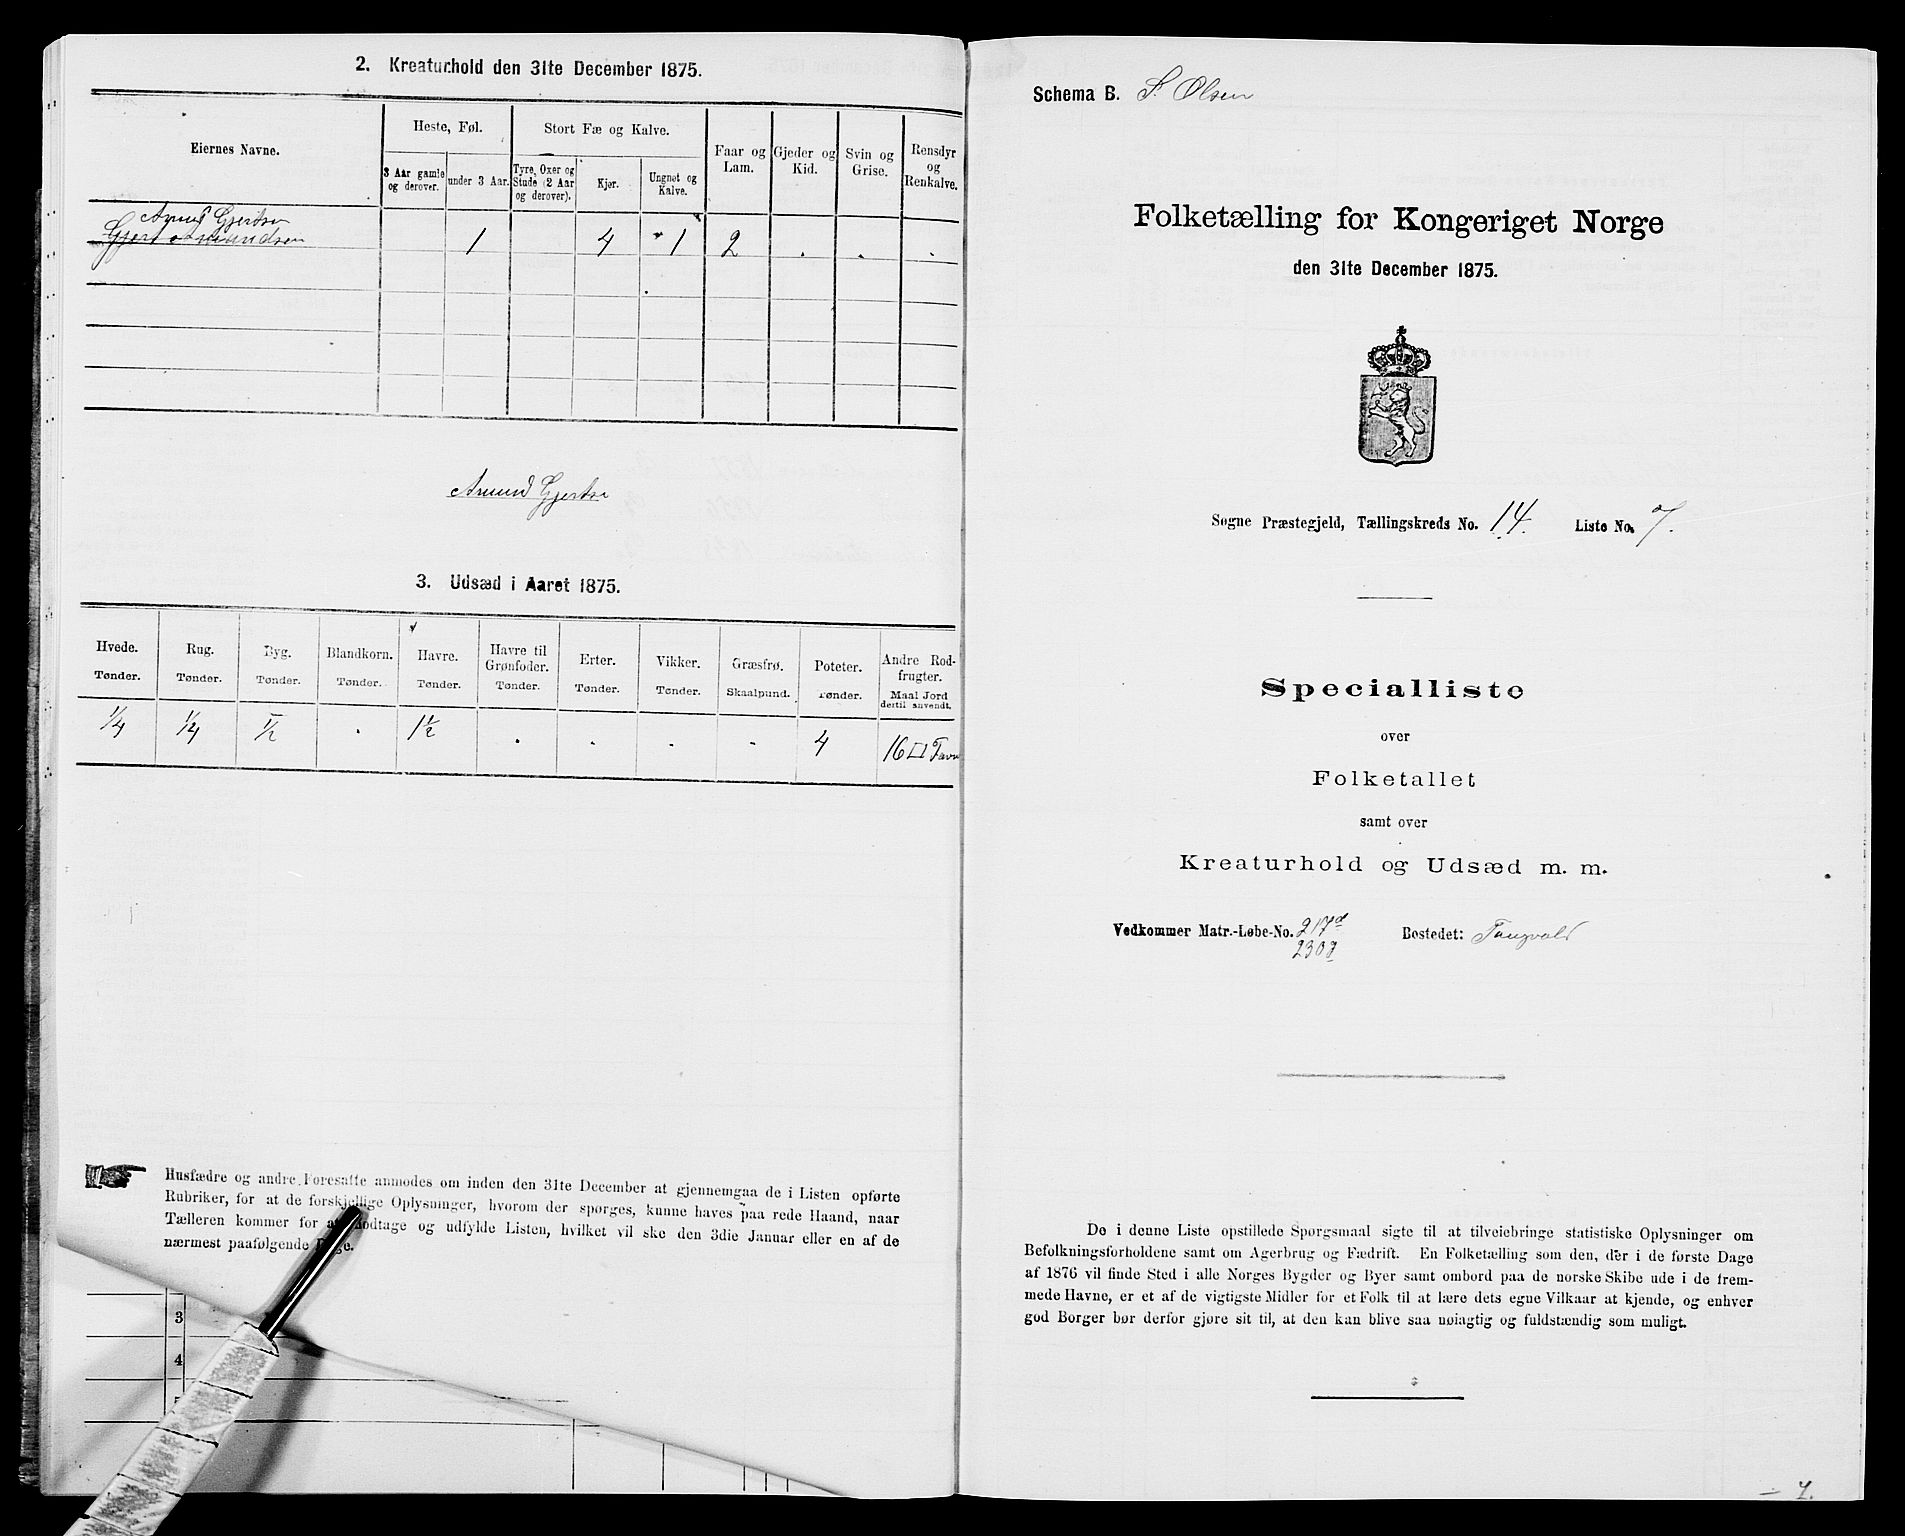 2. Kreaturhold den 31te December 1875.
Eiernes Navne.
Heste, Føl.
Stort Fæ og Kalve.
Faar og Lam.
Gjeder og Kid.
Svin og Grise.
Rensdyr og Renkalve.
3 Aar gamle og derover.
under 3 Aar.
Tyre, Oxer og Stude (2 Aar og derover).
Kjør.
Ungnøt og Kalve.
Gjertsen
Gjert Asmundsen 1 4 1 2 . . .
Asmund Gjertse
3. Udsæd i Aaret 1875.
Hvede. Rug. Byg. Blandkorn. Havre. Havre til Grønfoder. Erter. Vikker. Græsfrø. Poteter. Andre Rodfrugter.
Tønder. Tønder. Tønder. Tønder. Tønder. Tønder. Tønder. Tønder. Skaalpund. Tønder. Maal Jord dertil anvendt.
1/4 1/4 1/2 . 1 1/2 . . . . 4 16 □ Favn
Husfædre og andre Foresatte anmodes om inden den 31te December at gjennemgaa de i Listen opførte
Rubriker, for at de forskjellige Oplysninger, hvorom der spørges, kunne haves paa rede Haand, naar
Tælleren kommer for at modtage og udfylde Listen, hvilket vil ske den 3die Januar eller en af de
nærmest paafølgende Dage.
3
4
Schema B. S. Olsen
Folketælling for Kongeriget Norge
den 31te December 1875.
Søgne Præstegjeld, Tællingskreds No. 14. Liste No. 7.
Specialliste
over
Folketallet
samt over
Kreaturhold og Udsæd m. m.
Vedkommer Matr.-Løbe-No. 217d Bostedet: Tangvald
230
De i denne Liste opstillede Spørgsmaal sigte til at tilveiebringe statistiske Oplysninger om
Befolkningsforholdene samt om Agerbrug og Fædrift. En Folketælling som den, der i de første Dage
af 1876 vil finde Sted i alle Norges Bygder og Byer samt ombord paa de norske Skibe ude i de frem-
mede Havne, er et af de vigtigste Midler for et Folk til at lære dets egne Vilkaar at kjende, og enhver
god Borger bør derfor gjøre sit til, at den kan blive saa nøiagtig og fuldstændig som muligt.